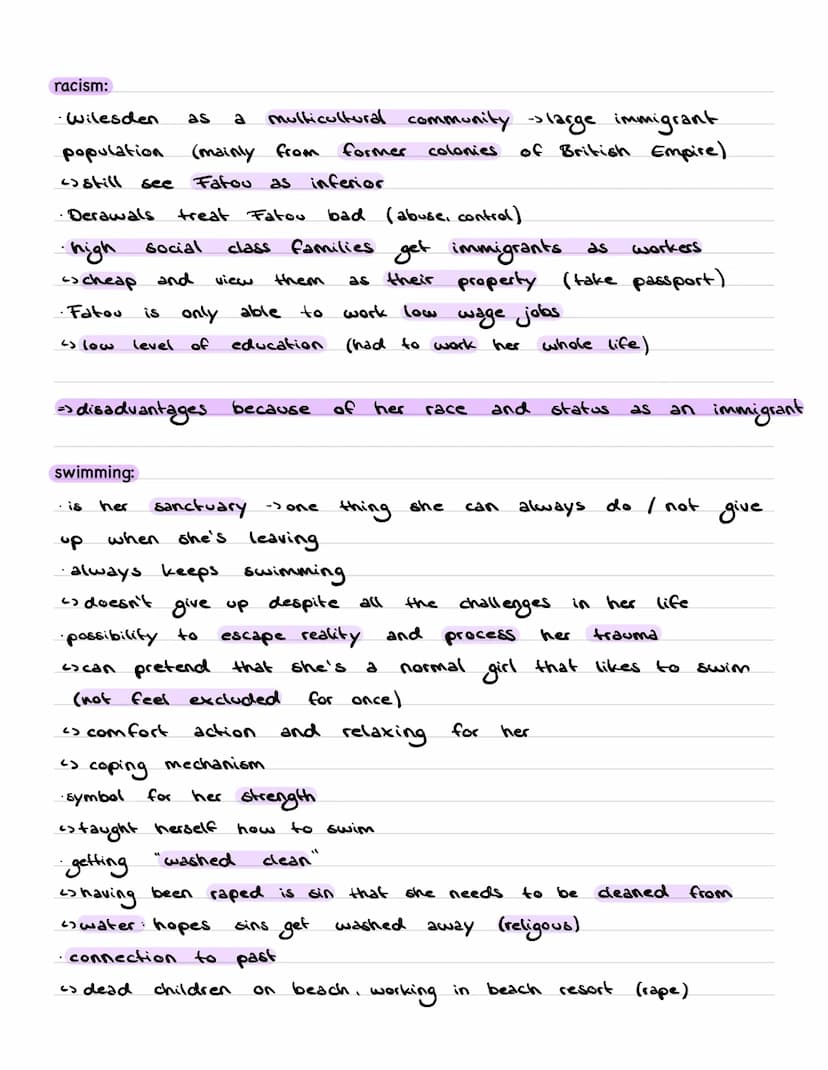 racism:
· Wilesden as a multicultural community -> large immigrant
population (mainly from former colonies of British Empire)
↳ still see Fatou as inferior
· Derawals treat Fatou bad (abuse, control)
· high social class families get immigrants as workers
↳ cheap and view them as their property (take passport)
· Fatou is only able to work low wage jobs
↳ low level of education (had to work her whole life)
=> disadvantages because of her race and status as an immigrant
swimming:
· is her sanctuary -> one thing she can always do / not give
up when she's leaving
· always keeps swimming
↳ doesn't give up despite all the challenges in her life
· possibility to escape reality and process her trauma
↳ can pretend that she's a normal girl that likes to swim
(not feel excluded for once)
↳ comfort action and relaxing for her
↳ coping mechanism
· symbol for her strength
↳ taught herself how to swim
· getting "washed clean"
↳ having been raped is sin that she needs to be cleaned from
↳ water: hopes sins get washed away (religous)
· connection to past
↳ dead children on beach, working in beach resort (rape)